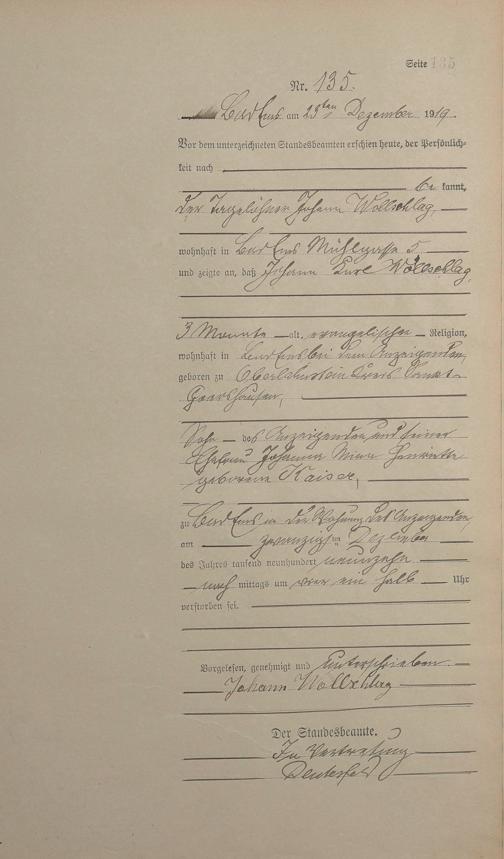 Seite 135
Nr. 135.
Bad Ems am 23ten Dezember 1919.
Vor dem unterzeichneten Standesbeamten erschien heute, der Persönlich-
keit nach
be kannt,
der Tagelöhner Johann Wollschlag,
wohnhaft in Bad Ems Mühlgasse 5
und zeigte an, daß Johann Karl Wollschlag,
3 Monate alt, evangelischer Religion,
wohnhaft in Bad Ems bei dem Anzeigenden,
geboren zu Oberlahnstein Kreis Sankt
Goarshausen,
Sohn des Anzeigenden und seiner
Ehefrau Johanna Henriette
geborene Kaiser,
zu Bad Ems in der Wohnung des Anzeigenden
am zwanzigsten Dezember
des Jahres tausend neunhundert neunzehn
nach mittags um ein halb Uhr
verstorben sei.
Vorgelesen, genehmigt und unterschrieben
Johann Wollschlag
Der Standesbeamte.
In Vertretung